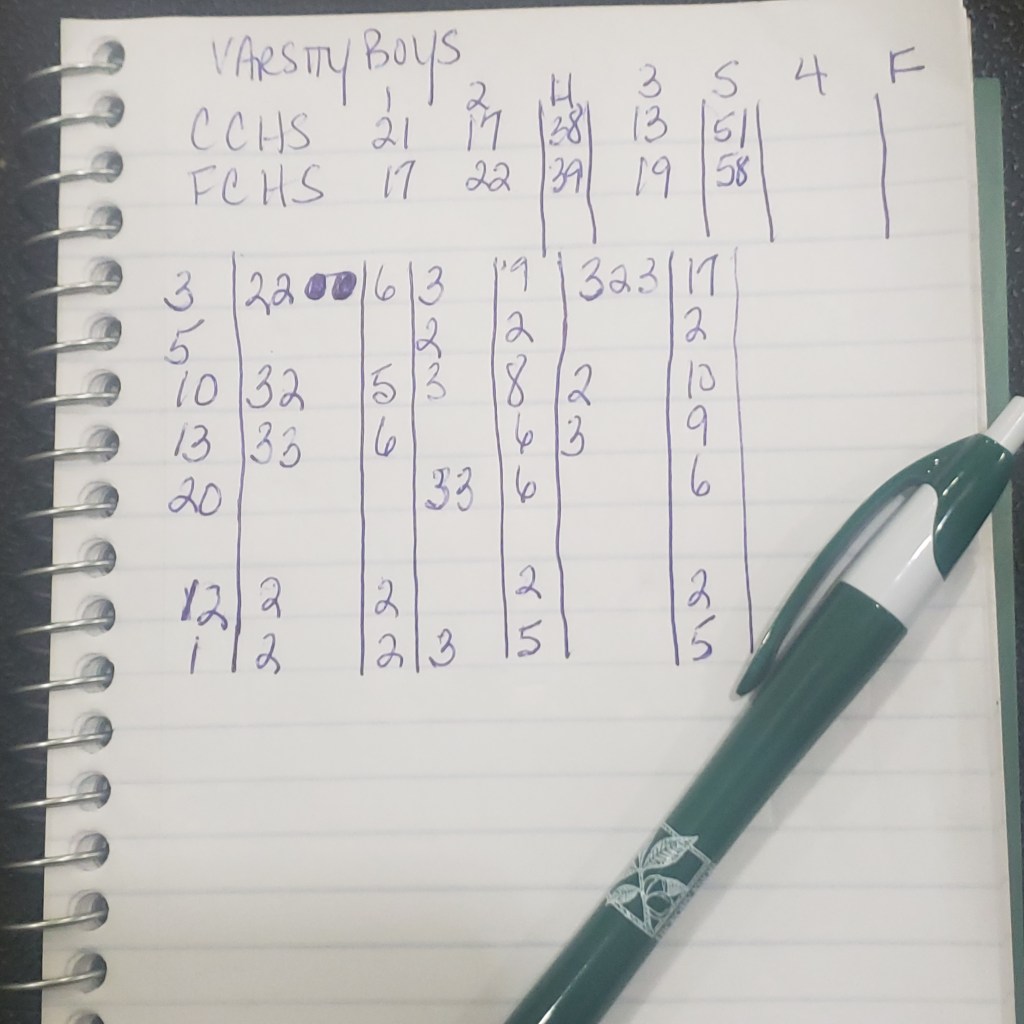 VARSITY BOYS
1 2 H 3 S 4 F
CCHS 21 17 38 13 51
FCHS 17 22 39 19 58
3 22 6 3 9 323 17
5 2 2 2
10 32 5 3 8 2 10
13 33 6 6 3 9
20 33 6 6
12 2 2 2 2
1 2 2 3 5 5